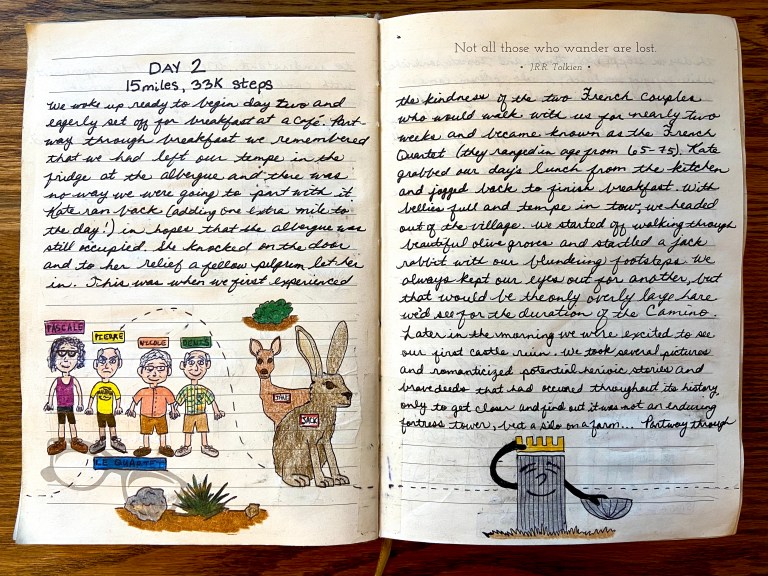 DAY 2
15 miles, 33K steps
We woke up ready to begin day two and
eagerly set off for breakfast at a café. Part-
way through breakfast we remembered
that we had left our tempe in the
fridge at the albergue and there was
no way we were going to part with it.
Kate ran back (adding one extra mile to
the day!) in hopes that the albergue was
still occupied. She knocked on the door
and to her relief a fellow pilgrim let her
in. This was when we first experienced
PASCALE
PIERRE
NICOLE
DENIS
LE QUARTET
JACK
Not all those who wander are lost.
• J.R.R. Tolkien •
the kindness of the two French couples
who would walk with us for nearly two
weeks and became known as the French
Quartet (they ranged in age from 65-75). Kate
grabbed our day's lunch from the kitchen
and jogged back to finish breakfast. With
bellies full and tempe in tow, we headed
out of the village. We started off walking through
beautiful olive groves and startled a jack
rabbit with our blundering footsteps. We
always kept our eyes out for another, but
that would be the only overly large hare
we'd see for the duration of the Camino.
Later in the morning we were excited to see
our first castle ruin. We took several pictures
and romanticized potential heroic stories and
brave deeds that had occured throughout its history
only to get closer and find out it was not an enduring
fortress tower, but a silo on a farm... Partway through